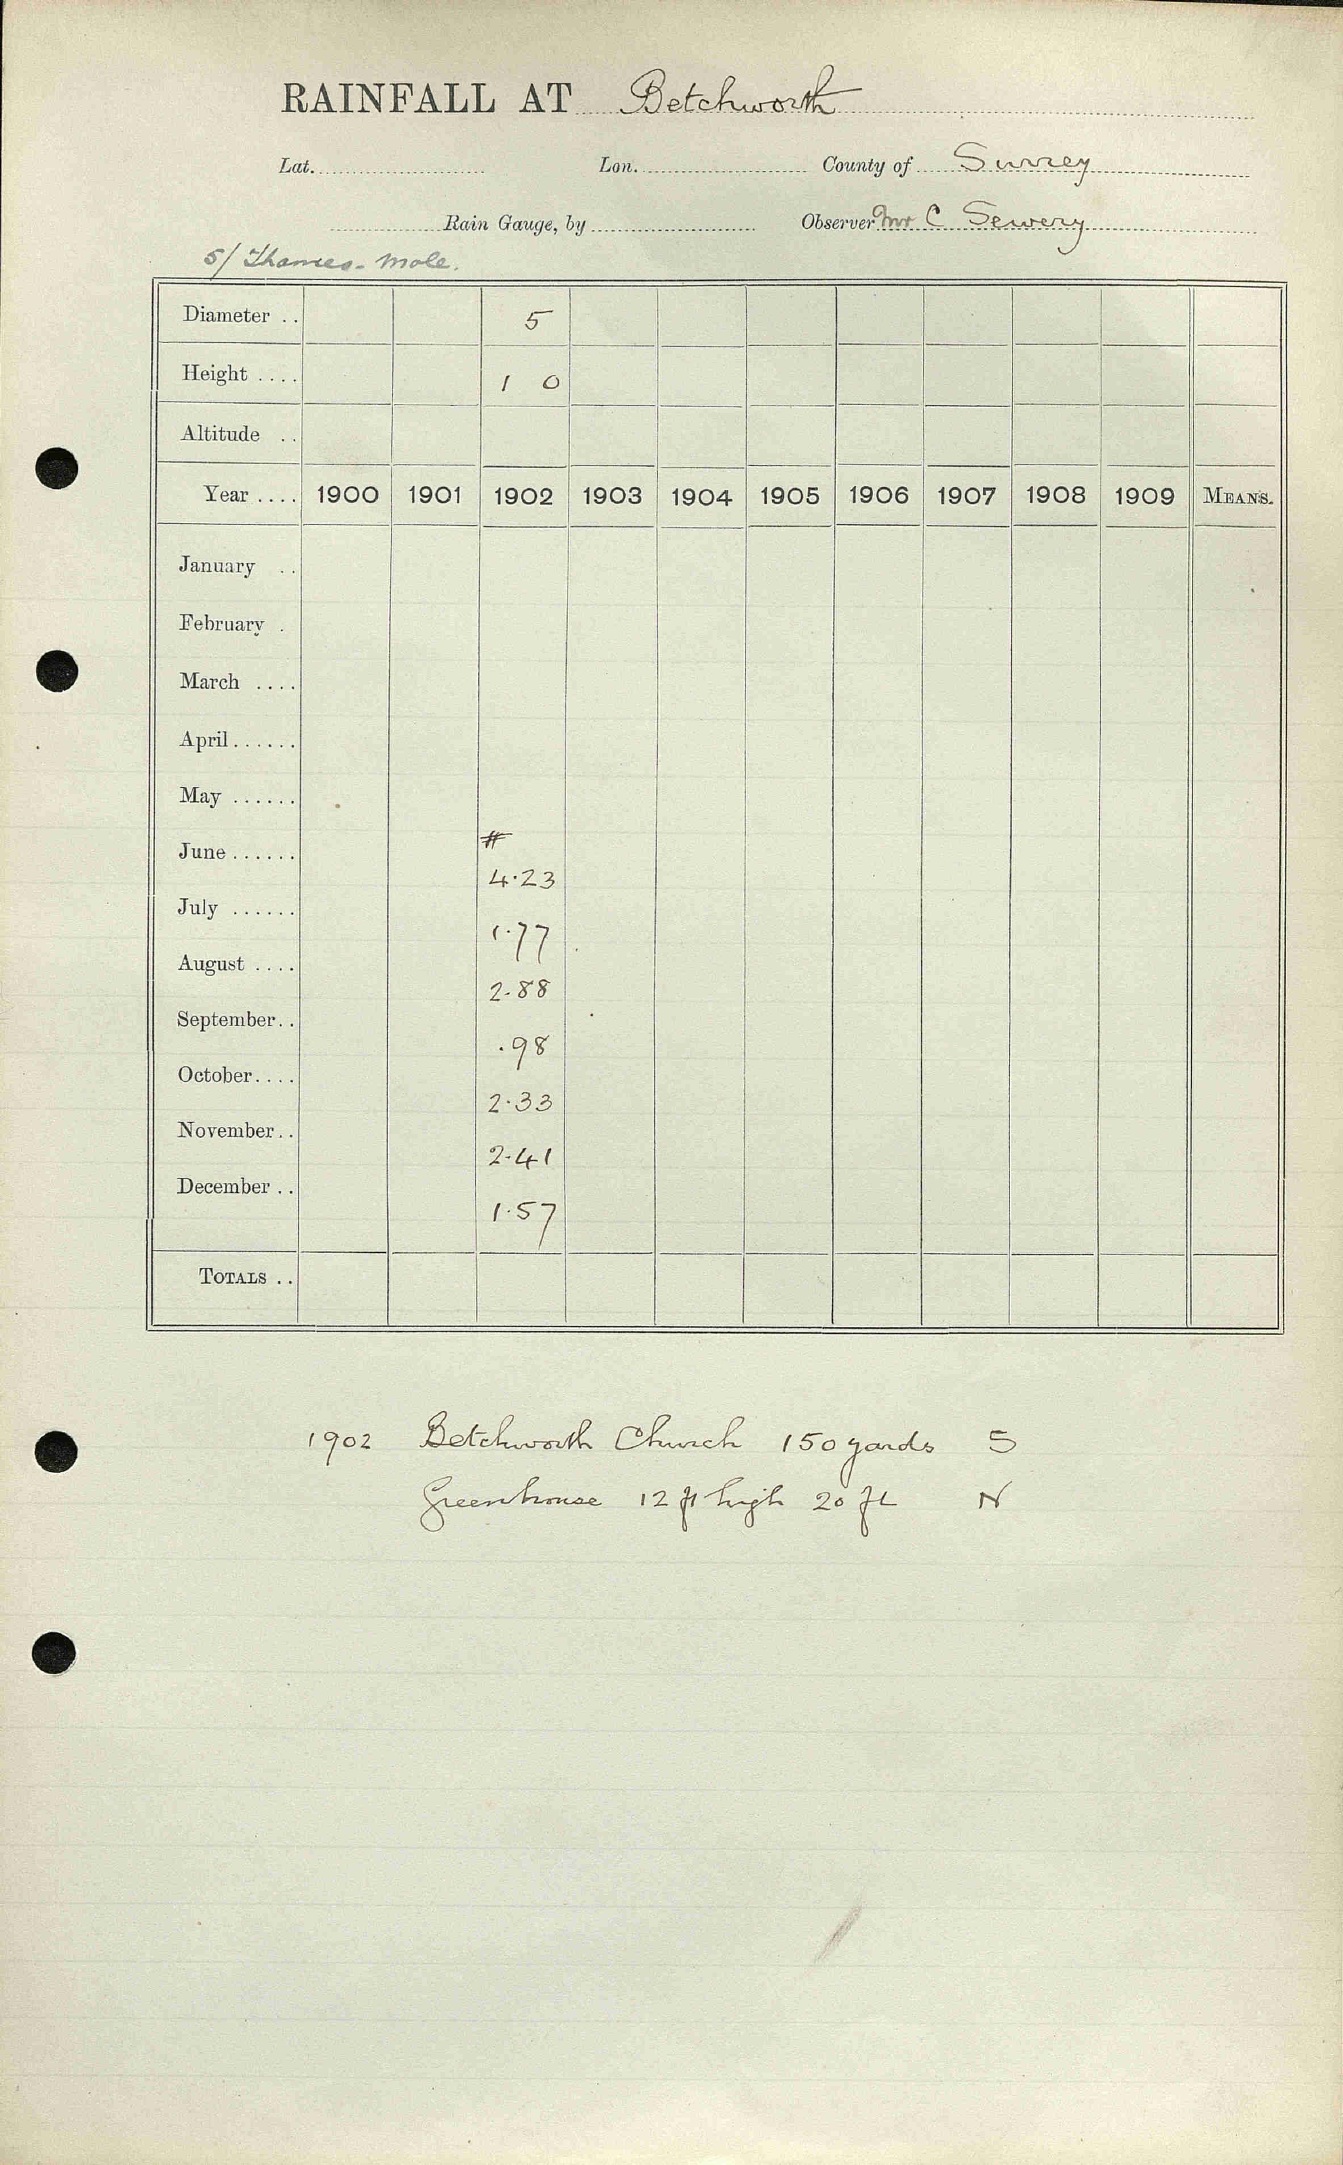 RAINFALL AT Betchworth
Lat. Lon. County of Surrey
Rain Gauge, by Observer Mr C Sewery
5/ Thames - Mole.
Diameter .. 5
Height .... 1 0
Altitude ..
Year .... 1900 1901 1902 1903 1904 1905 1906 1907 1908 1909 MEANS.
January ..
February .
March ....
April ......
May ......
June ...... # 4.23
July ...... 1.77
August .... 2.88
September.. .98
October.... 2.33
November.. 2.41
December .. 1.57
TOTALS ..
1902 Betchworth Church 150 yards S
Greenhouse 12 ft high 20 ft N